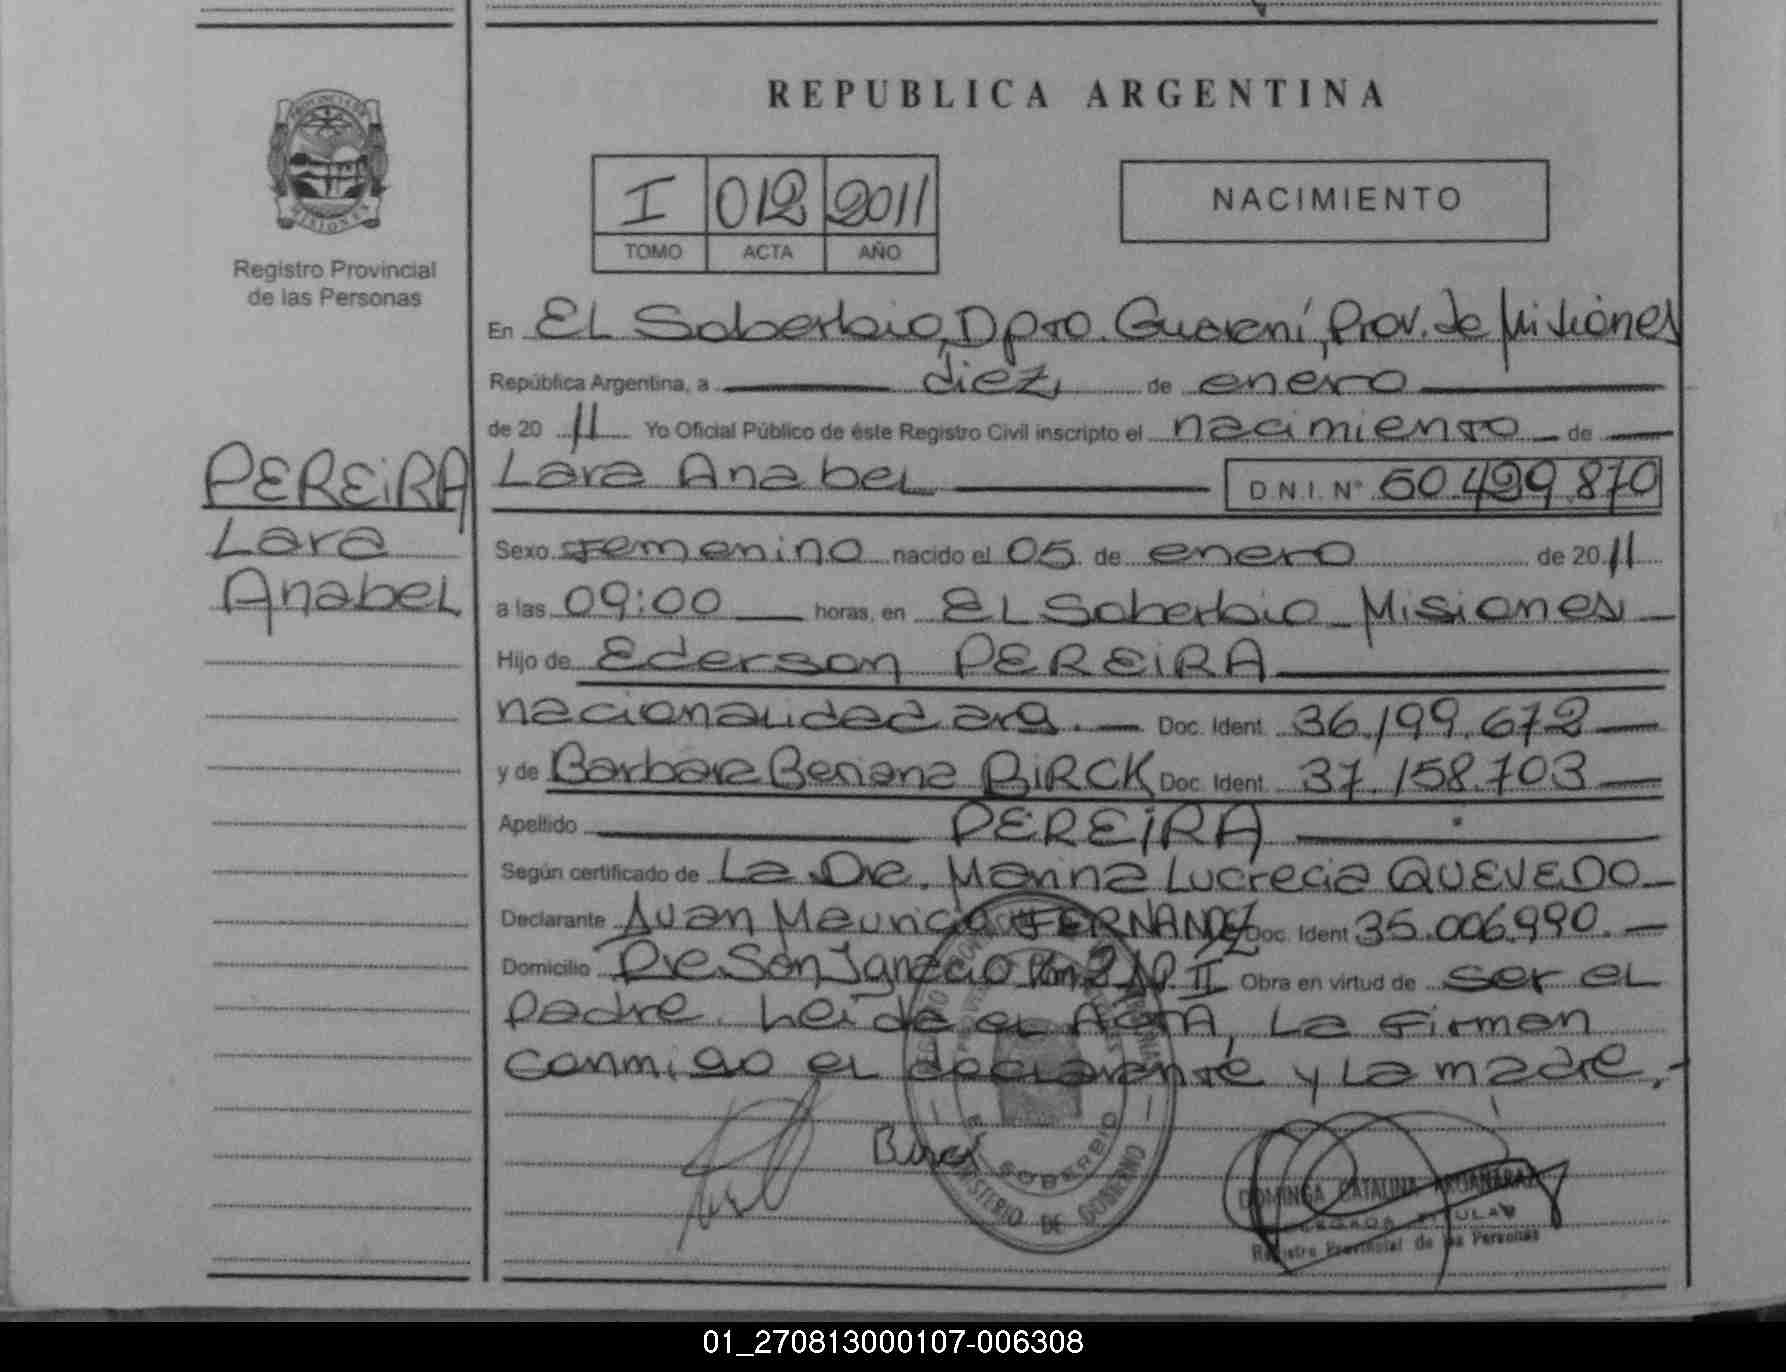 REPUBLICA ARGENTINA
PROVINCIA DE
MISIONES
Registro Provincial
de las Personas
I 012 2011
TOMO ACTA AÑO
NACIMIENTO
En EL Soberbio, Dpto. Guarani, Prov. de Misiones
República Argentina, a diez de enero
de 20 11 Yo Oficial Público de éste Registro Civil inscripto el nacimiento de
PEREIRA
Lara
Anabel
Lara Anabel D.N.I. N° 50.499.870
Sexo Femenino nacido el 05 de enero de 20 11
a las 09:00 horas, en EL Soberbio _ Misiones
Hijo de Ederson PEREIRA
nacionalidad arg. Doc. Ident. 36.199.672
y de Barbara Beriana BIRCK Doc. Ident. 37.158.703
Apellido PEREIRA
Según certificado de La Dra. Marina Lucrecia QUEVEDO
Declarante Juan Mauricio FERNANDEZ Doc. Ident 35.006.990.
Domicilio San Ignacio II Obra en virtud de ser el
padre. Leída el ActA, La Firman
conmigo el declarante y La madre.-
Birck
EL SOBERBIO
MINISTERIO DE GOBIERNO
DOMINGA CATALINA
DELEGADA TITULAR
Registro Provincial de las Personas
01_270813000107-006308